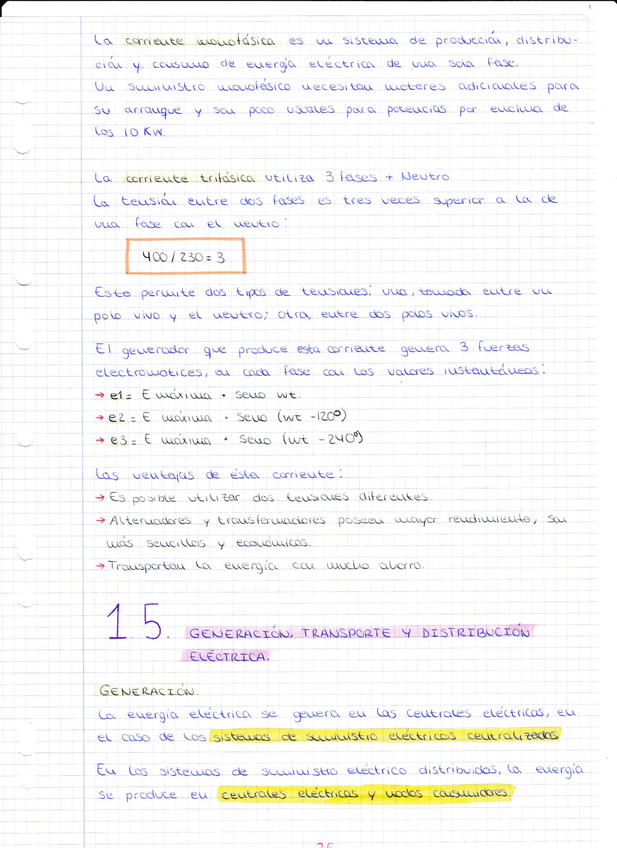 La corriente monofásica es un sistema de producción, distribu-
ción y consumo de energía eléctrica de una sola fase.
Un suministro monofásico necesitan moteres adicionales para
su arranque y son poco usuales para potencias por encima de
los 10 KW.
La corriente trifásica utiliza 3 fases + Neutro.
La tensión entre dos fases es tres veces superior a la de
una fase con el neutro:
400 / 230 = 3
Esto permite dos tipos de tensiones: una, tomada entre un
polo vivo y el neutro; otra, entre dos polos vivos.
El generador que produce esta corriente genera 3 fuerzas
electromotices, en cada fase con los valores instantáneos:
→ e1 = E máxima · seno wt.
→ e2 = E máxima · seno (wt -120º)
→ e3 = E máxima · seno (wt -240º)
Las ventajas de ésta corriente:
→ Es posible utilizar dos tensiones diferentes.
→ Alternadores y transformadores poseen mayor rendimiento, son
más sencillos y económicos.
→ Transportan la energía con mucho ahorro.
1.5. GENERACIÓN, TRANSPORTE Y DISTRIBUCIÓN
ELÉCTRICA.
GENERACIÓN.
La energía eléctrica se genera en las centrales eléctricas, en
el caso de los sistemas de suministro eléctricos centralizados
En los sistemas de suministro eléctrico distribuidos, la energía
se produce en centrales eléctricas y nodos consumidores.